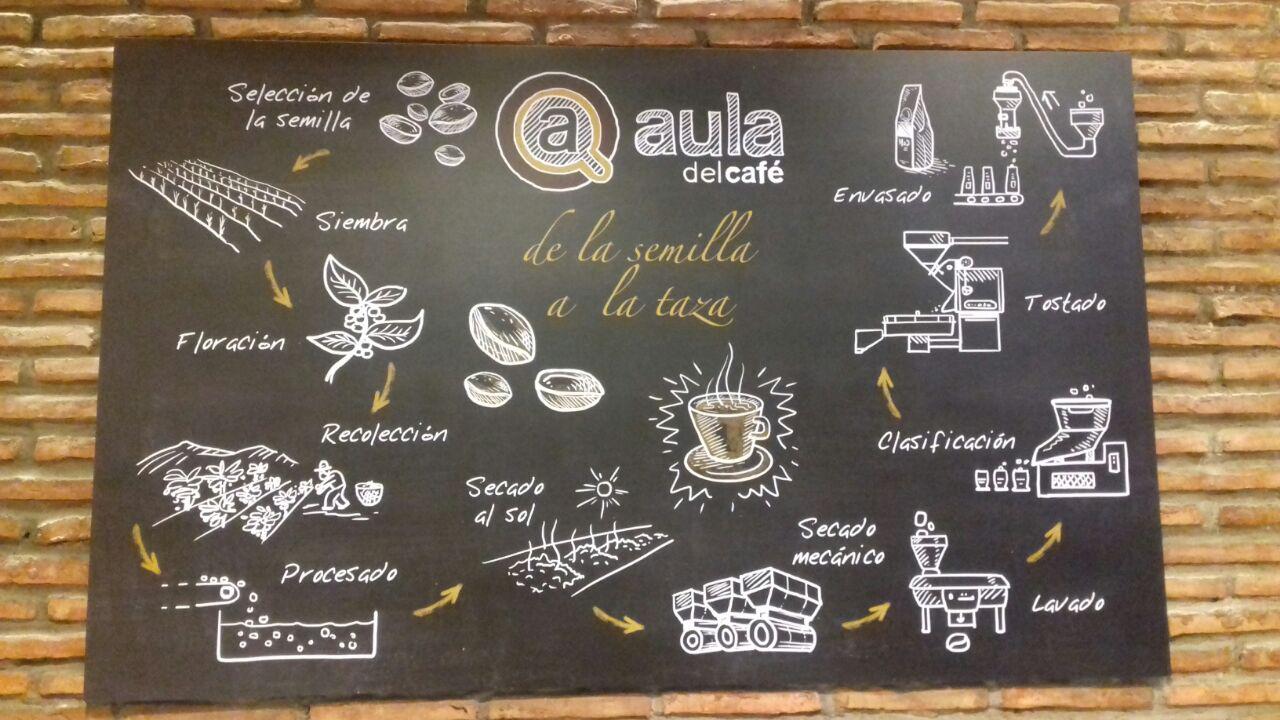 Selección de
la semilla
a aula
delcafé
de la semilla
a la taza
Siembra
Floración
Recolección
Procesado
Secado
al sol
Secado
mecánico
Lavado
Clasificación
Tostado
Envasado